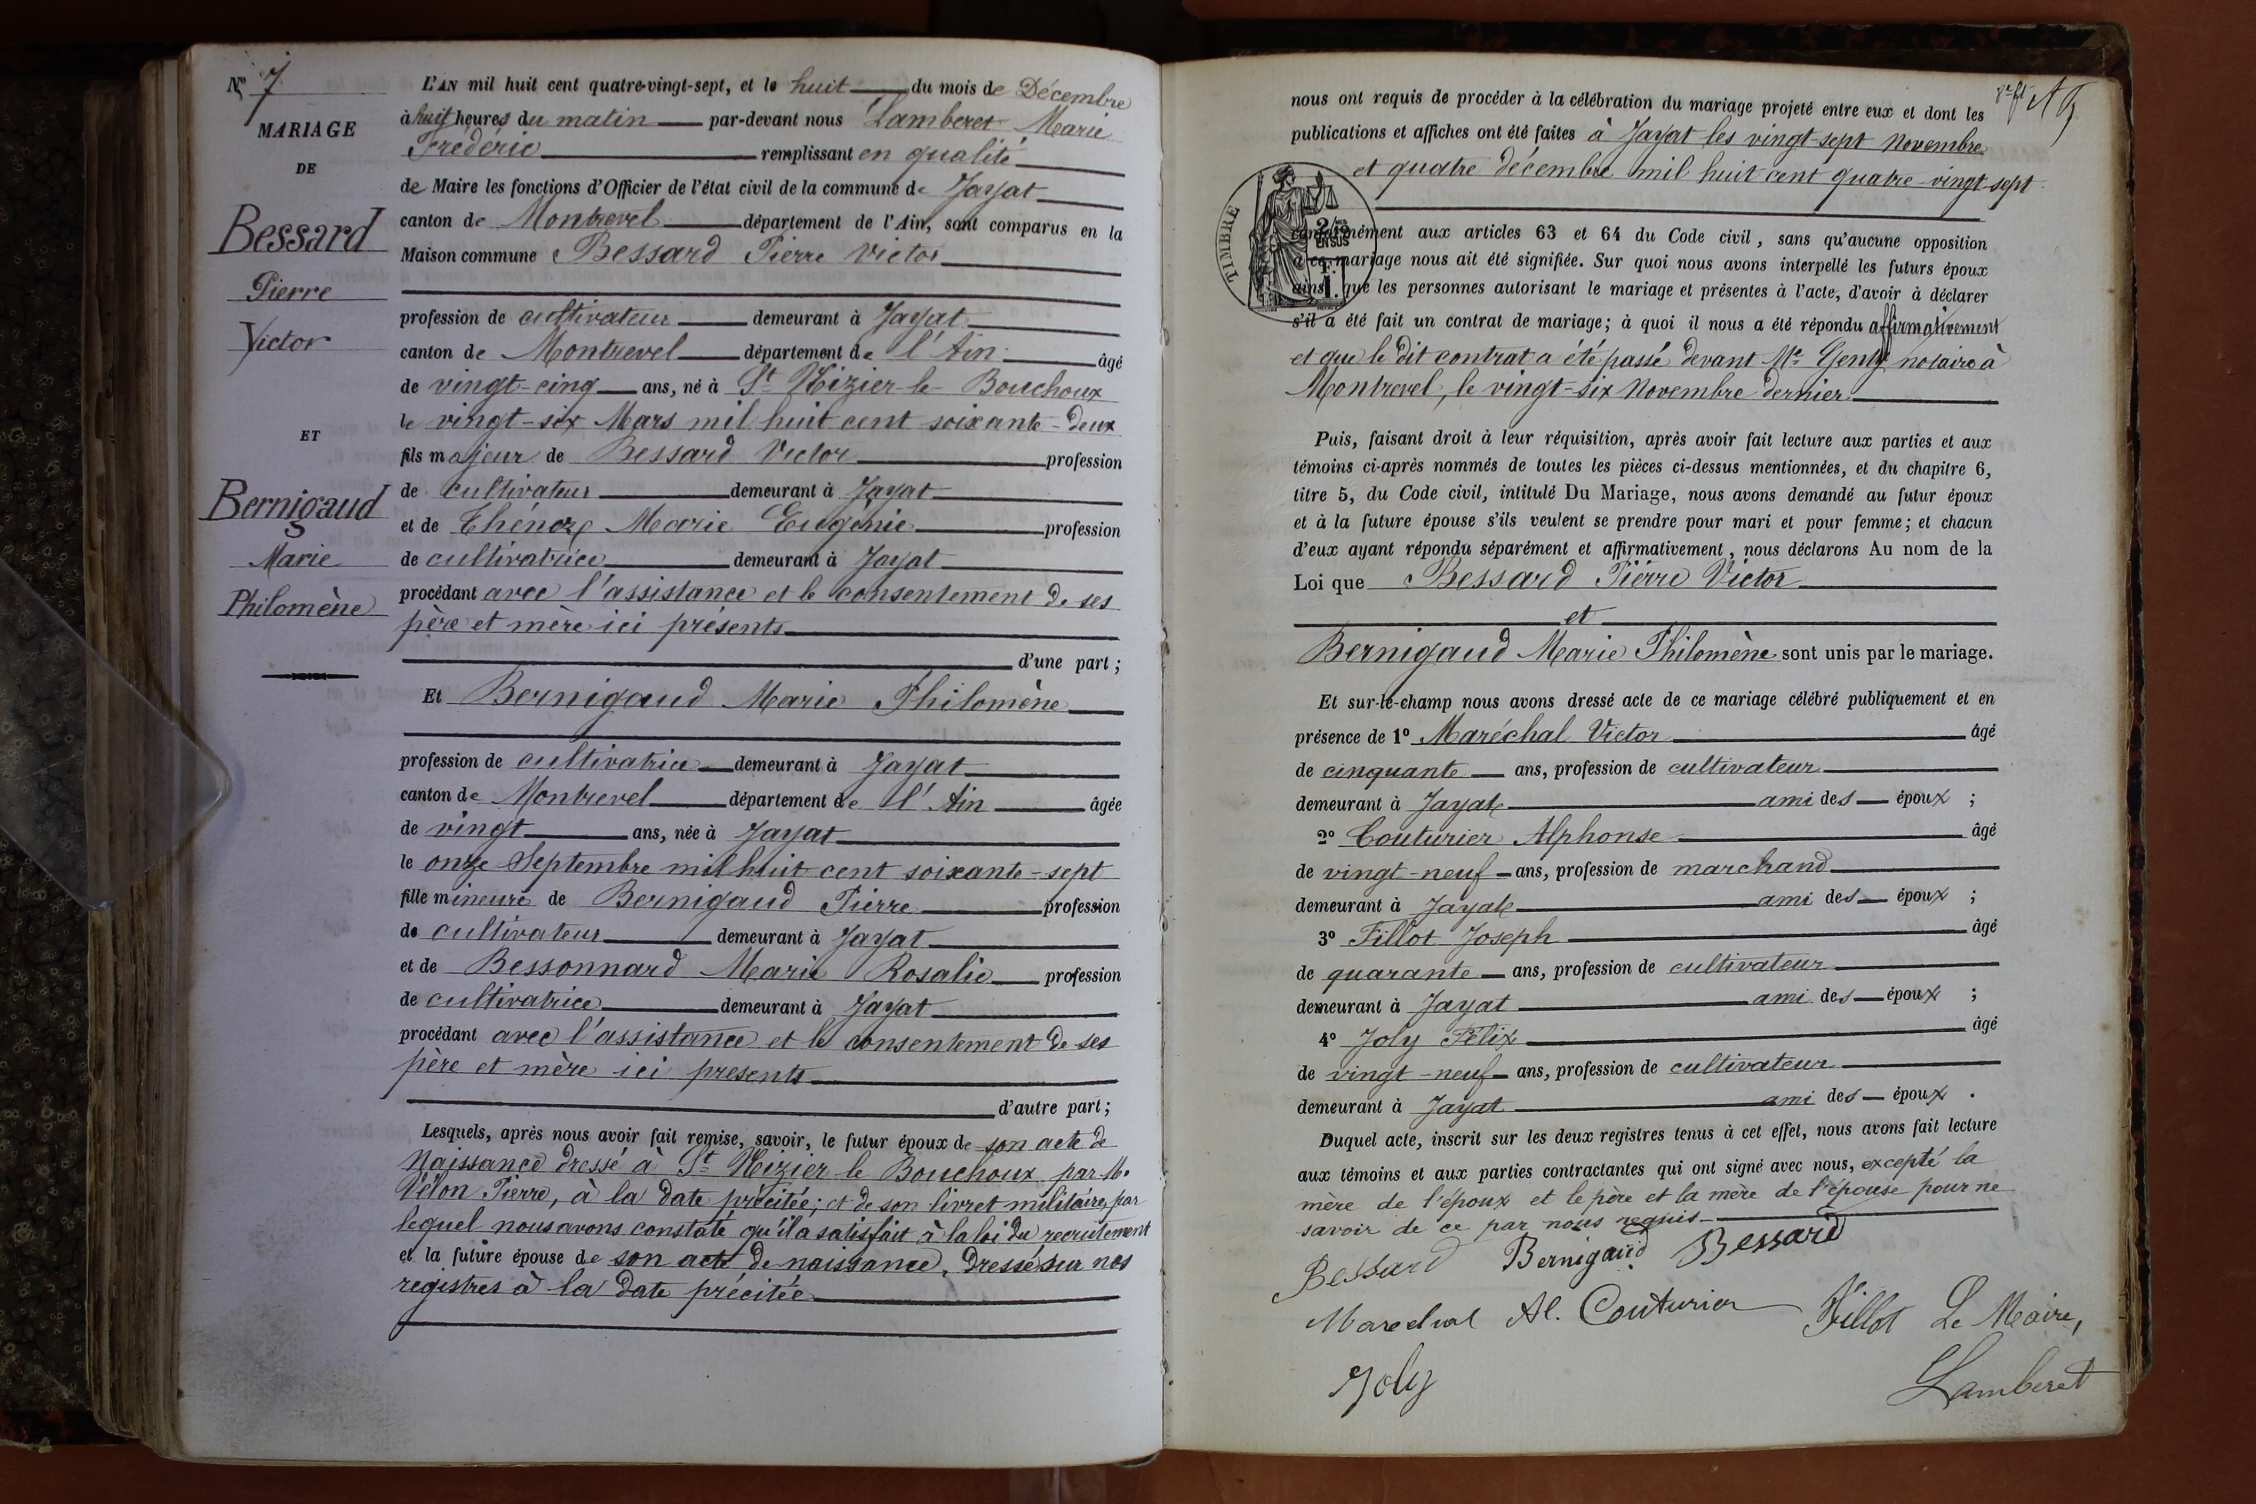 No 7
MARIAGE
DE
Bessard
Pierre
Victor
ET
Bernigaud
Marie
Philomène
L'AN mil huit cent quatre-vingt-sept, et le huit du mois de Décembre
à huit heures du matin par-devant nous Lamberet Marie
Frédéric remplissant en qualité
de Maire les fonctions d'Officier de l'état civil de la commune de Jayat
canton de Montrevel département de l'Ain, sont comparus en la
Maison commune Bessard Pierre Victor
profession de cultivateur demeurant à Jayat
canton de Montrevel département de l'Ain âgé
de vingt-cinq ans, né à St Nizier-le-Bouchoux
le vingt-six Mars mil huit cent soixante-deux
fils majeur de Bessard Victor profession
de cultivateur demeurant à Jayat
et de Thénoz Marie Eugénie profession
de cultivatrice demeurant à Jayat
procédant avec l'assistance et le consentement de ses
père et mère ici présents
d'une part ;
Et Bernigaud Marie Philomène
profession de cultivatrice demeurant à Jayat
canton de Montrevel département de l'Ain âgée
de vingt ans, née à Jayat
le onze Septembre mil huit cent soixante-sept
fille mineure de Bernigaud Pierre profession
de cultivateur demeurant à Jayat
et de Bessonnard Marie Rosalie profession
de cultivatrice demeurant à Jayat
procédant avec l'assistance et le consentement de ses
père et mère ici présents
d'autre part ;
Lesquels, après nous avoir fait remise, savoir, le futur époux de son acte de
Naissance dressé à St Nizier le Bouchoux par M.
Pierre, à la date précitée ; et de son livret militaire, par
lequel nous avons constaté qu'il a satisfait à la loi du recrutement
et la future épouse de son acte de naissance, dressé sur nos
registres à la date précitée
nous ont requis de procéder à la célébration du mariage projeté entre eux et dont les
publications et affiches ont été faites à Jayat les vingt-sept Novembre
et quatre décembre mil huit cent quatre-vingt-sept
TIMBRE
2/10es
EN SUS
1 F.
conformément aux articles 63 et 64 du Code civil, sans qu'aucune opposition
à ce mariage nous ait été signifiée. Sur quoi nous avons interpellé les futurs époux
ainsi que les personnes autorisant le mariage et présentes à l'acte, d'avoir à déclarer
s'il a été fait un contrat de mariage ; à quoi il nous a été répondu affirmativement
et que le dit contrat a été passé devant Me Genty notaire à
Montrevel, le vingt-six Novembre dernier
Puis, faisant droit à leur réquisition, après avoir fait lecture aux parties et aux
témoins ci-après nommés de toutes les pièces ci-dessus mentionnées, et du chapitre 6,
titre 5, du Code civil, intitulé Du Mariage, nous avons demandé au futur époux
et à la future épouse s'ils veulent se prendre pour mari et pour femme ; et chacun
d'eux ayant répondu séparément et affirmativement, nous déclarons Au nom de la
Loi que Bessard Pierre Victor
et
Bernigaud Marie Philomène sont unis par le mariage.
Et sur-le-champ nous avons dressé acte de ce mariage célébré publiquement et en
présence de 1° Maréchal Victor âgé
de cinquante ans, profession de cultivateur
demeurant à Jayat ami des époux ;
2° Couturier Alphonse âgé
de vingt-neuf ans, profession de marchand
demeurant à Jayat ami des époux ;
3° Fillot Joseph âgé
de quarante ans, profession de cultivateur
demeurant à Jayat ami des époux ;
4° Joly Félix âgé
de vingt-neuf ans, profession de cultivateur
demeurant à Jayat ami des époux .
Duquel acte, inscrit sur les deux registres tenus à cet effet, nous avons fait lecture
aux témoins et aux parties contractantes qui ont signé avec nous, excepté la
mère de l'époux et le père et la mère de l'épouse pour ne
savoir de ce par nous requis
Bessard Bernigaud Bessard
Marechal Al. Couturier Fillot Le Maire,
Joly Lamberet